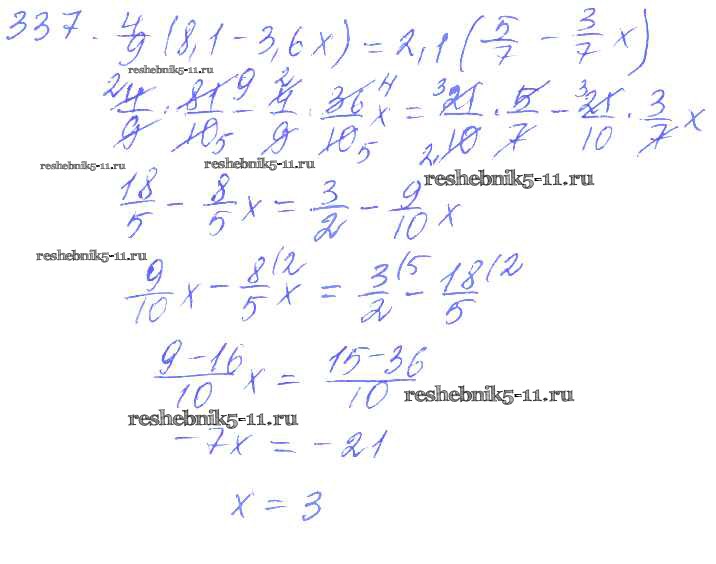 337. 4/9 (8,1 - 3,6x) = 2,1 (5/7 - 3/7 x)
reshebnik5-11.ru
2 4/9 · 81/10 5 9 - 2 4/9 · 36/10 5 4 x = 3 21/10 2 · 5/7 - 3 21/10 · 3/7 x
reshebnik5-11.ru reshebnik5-11.ru reshebnik5-11.ru
18/5 - 8/5 x = 3/2 - 9/10 x
reshebnik5-11.ru
9/10 x - 8/5 (2 x = 3/2 (5 - 18/5 (2
9-16/10 x = 15-36/10
reshebnik5-11.ru
reshebnik5-11.ru
-7x = -21
x = 3